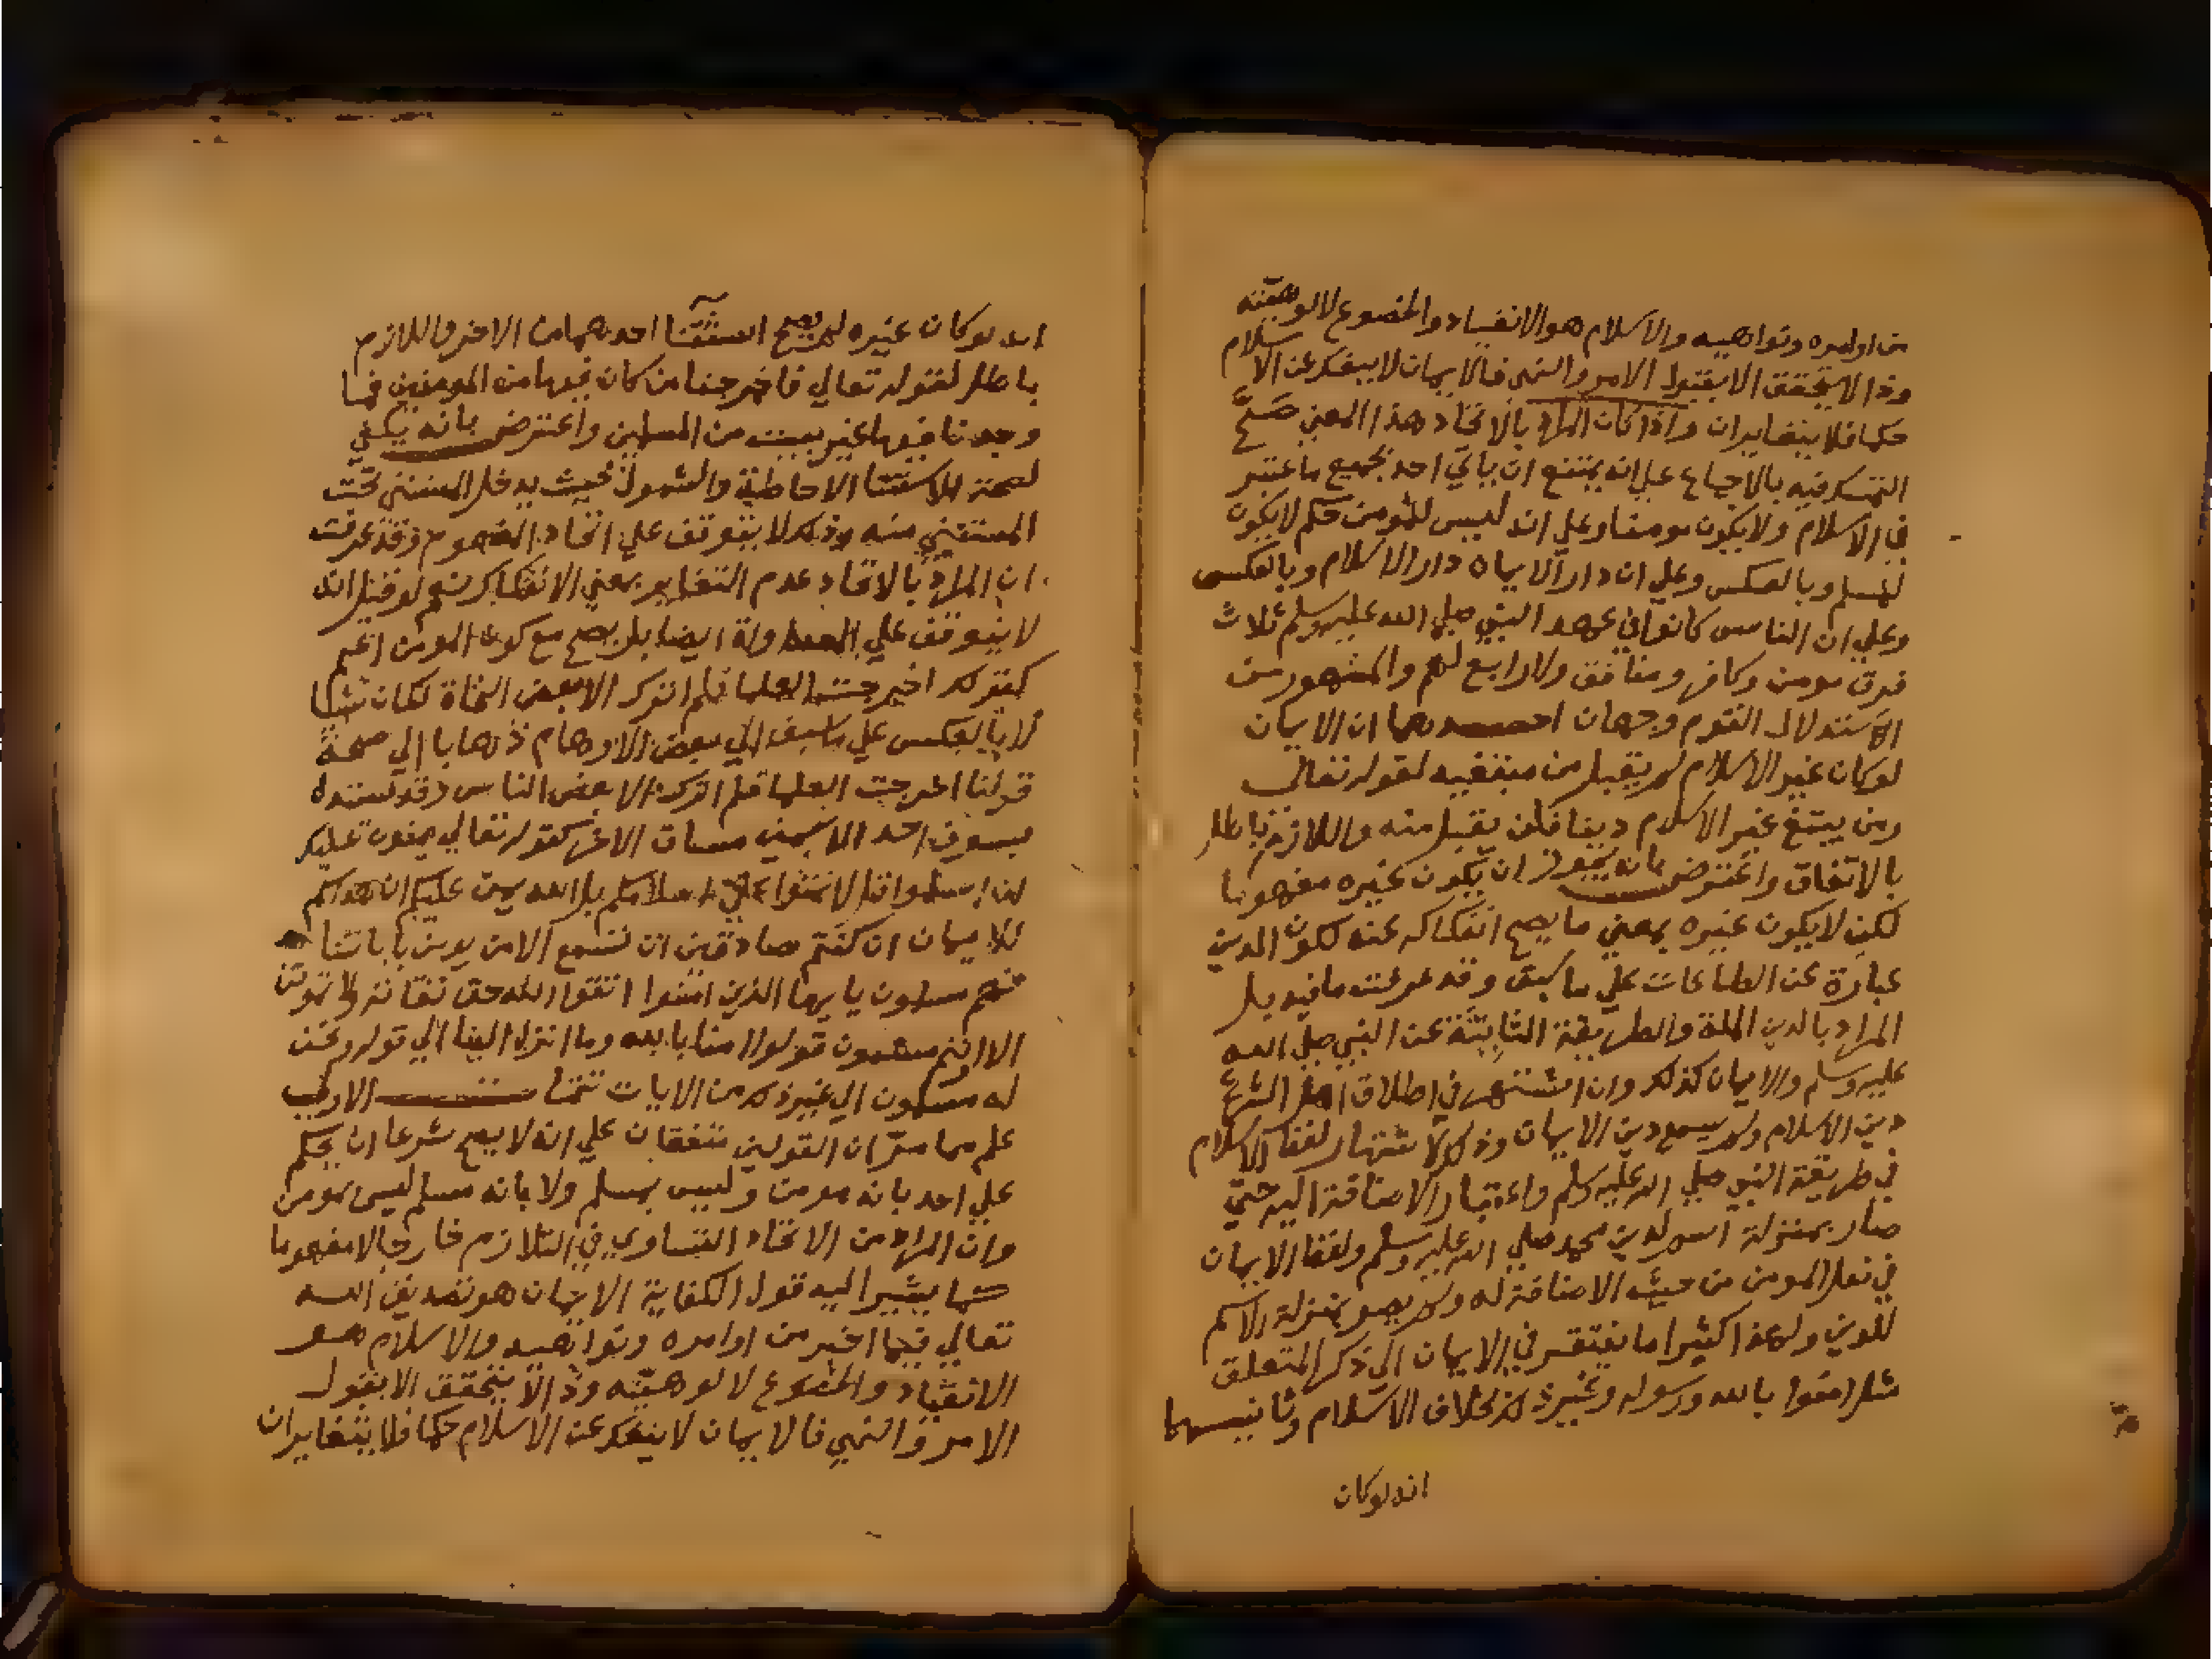 من اوامره ونواهيه والاسلام هو الانقياد والخضوع لالوهيته
وذا لا يتحقق الا بقبول الامر والنهي فالايمان لا ينفك عن الاسلام
حكما فلا يتغايران واذا كان المراد بالاتحاد هذا المعني صح
التمسك فيه بالاجماع علي انه يمتنع ان ياتي احد بجميع ما اعتبر
في الاسلام ولا يكون مومنا وعلي انه ليس للمومن حكم لا يكون
للمسلم وبالعكس وعلي ان دار الايمان دار الاسلام وبالعكس
وعلي ان الناس كانوا في عهد النبي صلي الله عليه وسلم ثلاث
فرق مومن وكافر ومنافق ولا رابع لهم والمشهور من
الاستدلال القوم وجهان احدهما ان الايمان
لو كان غير الاسلام لم يقبل من مبتغيه لقوله تعالي
ومن يبتغ غير الاسلام دينا فلن يقبل منه واللازم باطل
بالاتفاق واعترض بانه يجوز ان يكون غيره مفهوما
لكن لا يكون غيره بمعني ما يصح انفكاكه عنه لكون الدين
عبارة عن الطاعات علي ما سبق وقد عرفت ما فيه بل
المراد بالدين الملة والطريقة الثابتة عن النبي صلي الله
عليه وسلم والايمان كذلك وان اشتهر في اطلاق اهل الشرع
دين الاسلام ولم يسمع دين الايمان وذلك لاشتهار لفظ الاسلام
في طريقة النبي صلي الله عليه وسلم واعتبار الاضافة اليه حتي
صار بمنزلة اسم لدين محمد صلي الله عليه وسلم ولفظ الايمان
في فعل المومن من حيث الاضافة له ولم يصر بمنزلة الاسم
للدين ولهذا كثيرا ما يفتقر في الايمان الي ذكر المتعلق
مثل امنوا بالله ورسوله وغير ذلك بخلاف الاسلام وثانيهما
انه لو كان
انه لو كان غيره لم يصح استثنا احدهما من الاخر واللازم
باطل لقوله تعالي فاخرجنا من كان فيها من المومنين فما
وجدنا فيها غير بيت من المسلمين واعترض بانه يكفي
لصحة الاستثنا الاحاطة والشمول بحيث يدخل المستثني تحت
المستثني منه وذلك لا يتوقف علي اتحاد المفهوم وقد عرفت
ان المراد بالاتحاد عدم التغاير بمعني الانفكاك نعم لو قيل انه
لا يتوقف علي المساواة ايضا بل يصح مع كون المومن اعم
كقولك اخرجت العلما فلم اترك الا بعض النحاة لكان شيا
لا بالعكس علي ما سبق الي بعض الاوهام ذهابا الي صحة
قولنا اخرجت العلما فلم اترك الا بعض الناس وقد يستدل
بسوق احد الاسمين مساق الاخر كقوله تعالي يمنون عليك
ان اسلموا قل لا تمنوا علي اسلامكم بل الله يمن عليكم ان هداكم
للايمان ان كنتم صادقين ان تسمع الا من يومن باياتنا
فهم مسلمون يا يها الذين امنوا اتقوا الله حق تقاته ولا تموتن
الا وانتم مسلمون قولوا امنا بالله وما انزل الينا الي قوله ونحن
له مسلمون الي غير ذلك من الايات الاول
علم مما مر ان القولين متفقان علي انه لا يصح شرعا ان يحكم
علي احد بانه مومن وليس بمسلم ولا بانه مسلم ليس بمومن
وان المراد من الاتحاد التساوي في التلازم خارجا لا مفهوما
كما يشير اليه قول الكفاية الايمان هو تصديق الله
تعالي فيما اخبر من اوامره ونواهيه والاسلام هو
الانقياد والخضوع لالوهيته وذا لا يتحقق الا بقبول
الامر والنهي فالايمان لا ينفك عن الاسلام حكما فلا يتغايران